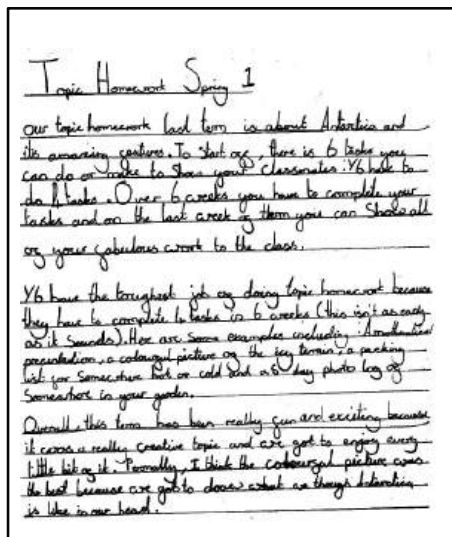 Topic Homework Spring 1
Our topic homework last term is about Antartica and
its amazing features. To start off, there is 6 tasks you
can do or make to show your classmates. Y6 have to
do 4 tasks. Over 6 weeks you have to complete your
tasks and on the last week of them you can show all
of your fabulous work to the class.
Y6 have the toughest job of doing topic homework because
they have to complete 4 tasks in 6 weeks (this isn't as easy
as it sounds). Here are some examples including: A
presentation, a colourful picture of the icy terrain, a packing
list for somewhere hot or cold and a 5 day photo log of
somewhere in your garden.
Overall, this term has been really fun and exciting because
it was a really creative topic and we got to enjoy every
little bit of it. Personally, I think the colourful picture was
the best because we got to draw what we though Antarctica
is like in our head.